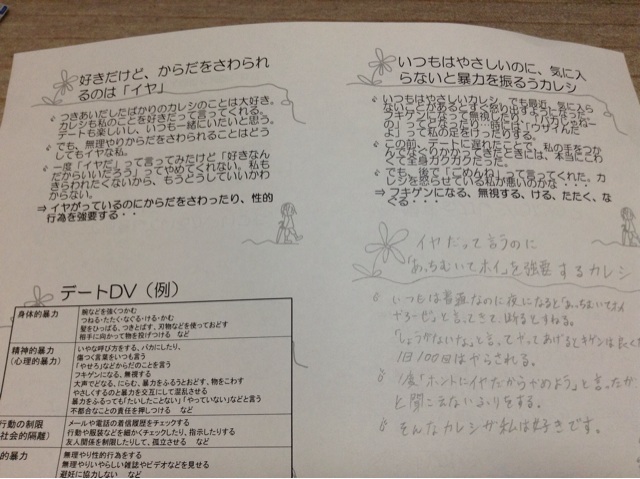 好きだけど、からだをさわられ
るのは「イヤ」
つきあいだしたばかりのカレシのことは大好き。
カレシも私のことを好きだって言ってくれる。
デートも楽しいし、いつも一緒にいたいと思う。
でも、無理やりからだをさわられることはどう
してもイヤな私。
一度「イヤだ」って言ってみたけど「好きなん
だからいいだろう」ってやめてくれない。私も
きらわれたくないから、もうどうしていいかわ
からない。
⇒ イヤがっているのにからだをさわったり、性的
行為を強要する・・
いつもはやさしいのに、気に入
らないと暴力を振るうカレシ
いつもはやさしいカレシ。でも最近、気に入ら
ないことがあるとすぐ怒り出す。
よ」って私の足をけったりする。
この前、デートに遅れたことで、私の手をつか
んでなぐりかかってきたときには、本当にこわ
くて全身ガクガクだった。
でも、後で「ごめんね」って言ってくれた。カ
レシを怒らせている私が悪いのかな・・・
⇒ フキゲンになる、無視する、ける、たたく、な
ぐる・・・
イヤだって言うのに
「あっちむいてホイ」を強要するカレシ
いつもは普通なのに夜になると「あっちむいてホイ
やろーぜ」と言ってきて、断るとすねる。
「しょうがないな」と言ってやってあげるとキゲンは良く
1日100回はやらされる。
1度「ホントにイヤだからやめよう」と言ったが
と聞こえないふりをする。
そんなカレシが私は好きです。
デートDV（例）
身体的暴力
腕などを強くつかむ
つねる・たたく・なぐる・ける・かむ
髪をひっぱる、つきとばす、刃物などを使っておどす
相手に向かって物を投げつける など
精神的暴力
（心理的暴力）
いやな呼び方をする、バカにしたり、
傷つく言葉をいつも言う
「やせろ」などからだのことを言う
フキゲンになる、無視する
大声でどなる、にらむ、暴力をふるうとおどす、物をこわす
やさしくするのと暴力を交互にして混乱させる
暴力をふるっても「たいしたことない」「やっていない」などと言う
不都合なことの責任を押しつける など
行動の制限
社会的隔離）
メールや電話の着信履歴をチェックする
行動や服装などを細かくチェックしたり、指示したりする
友人関係を制限したりして、孤立させる など
的暴力
無理やり性的行為をする
無理やりいやらしい雑誌やビデオなどを見せる
避妊に協力しない など